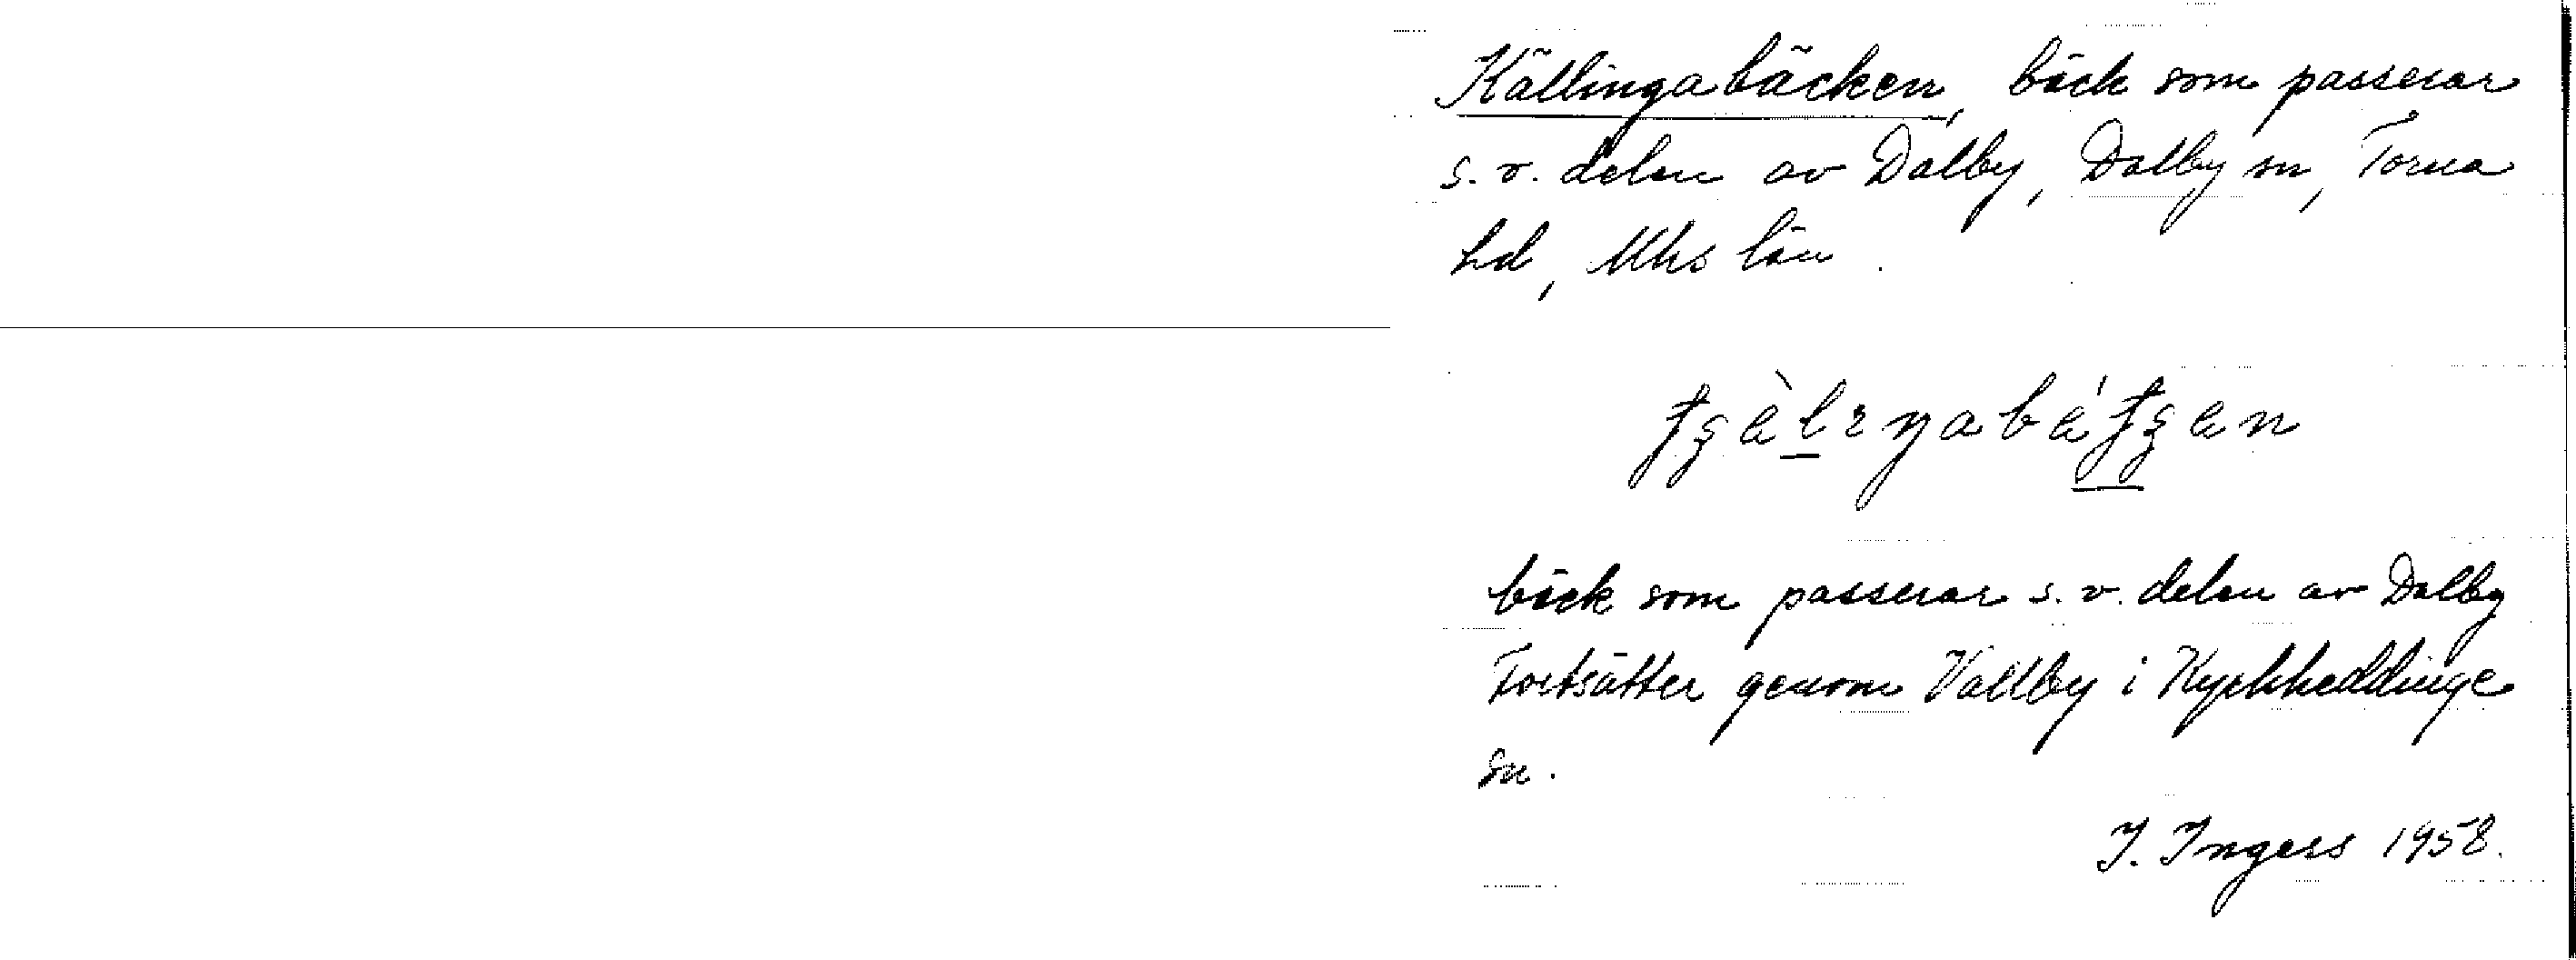 Källingabäcken, bäck som passerar
s. v. delen av Dalby, Dalby sn, Torna
hd, Mhs län.
bäck som passerar s. v. delen av Dalby
Fortsätter genom Vallby i Kyrkheddinge
sn.
I. Ingers 1958.